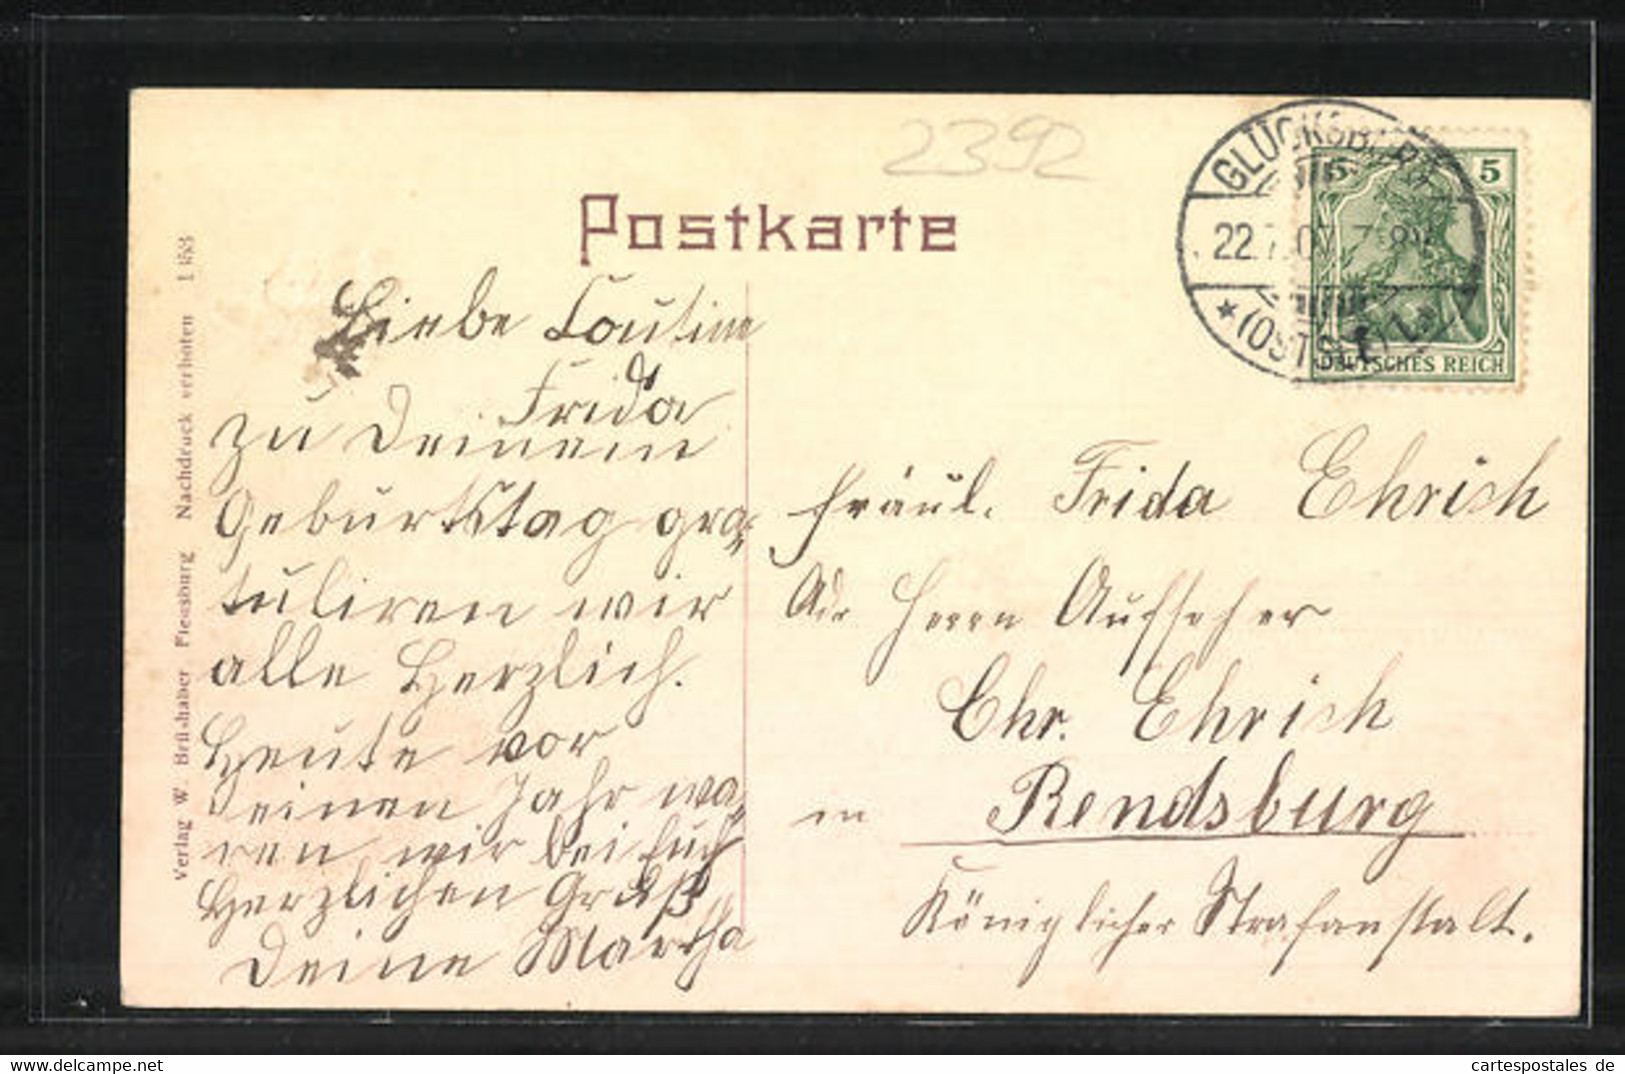 2392
Postkarte
GLÜCKSBURG
22.7.07. 7-8N.
* (OSTSEE)
5 5
DEUTSCHES REICH
Liebe Cousine
Frida
zu Deinem
Geburtstag gra,,
tuliren wir
alle Herzlich.
Heute vor
einen Jahr wa,,
ren wir bei Euch
Herzlichen Gruß
Deine Martha
Fräul. Frida Ehrich
Adr Herrn Aufseher
Chr. Ehrich
in Rendsburg
Königlicher Strafanstalt.
Verlag W. Brüshaber Flensburg Nachdruck verboten L 1553
www.delcampe.net
cartespostales de